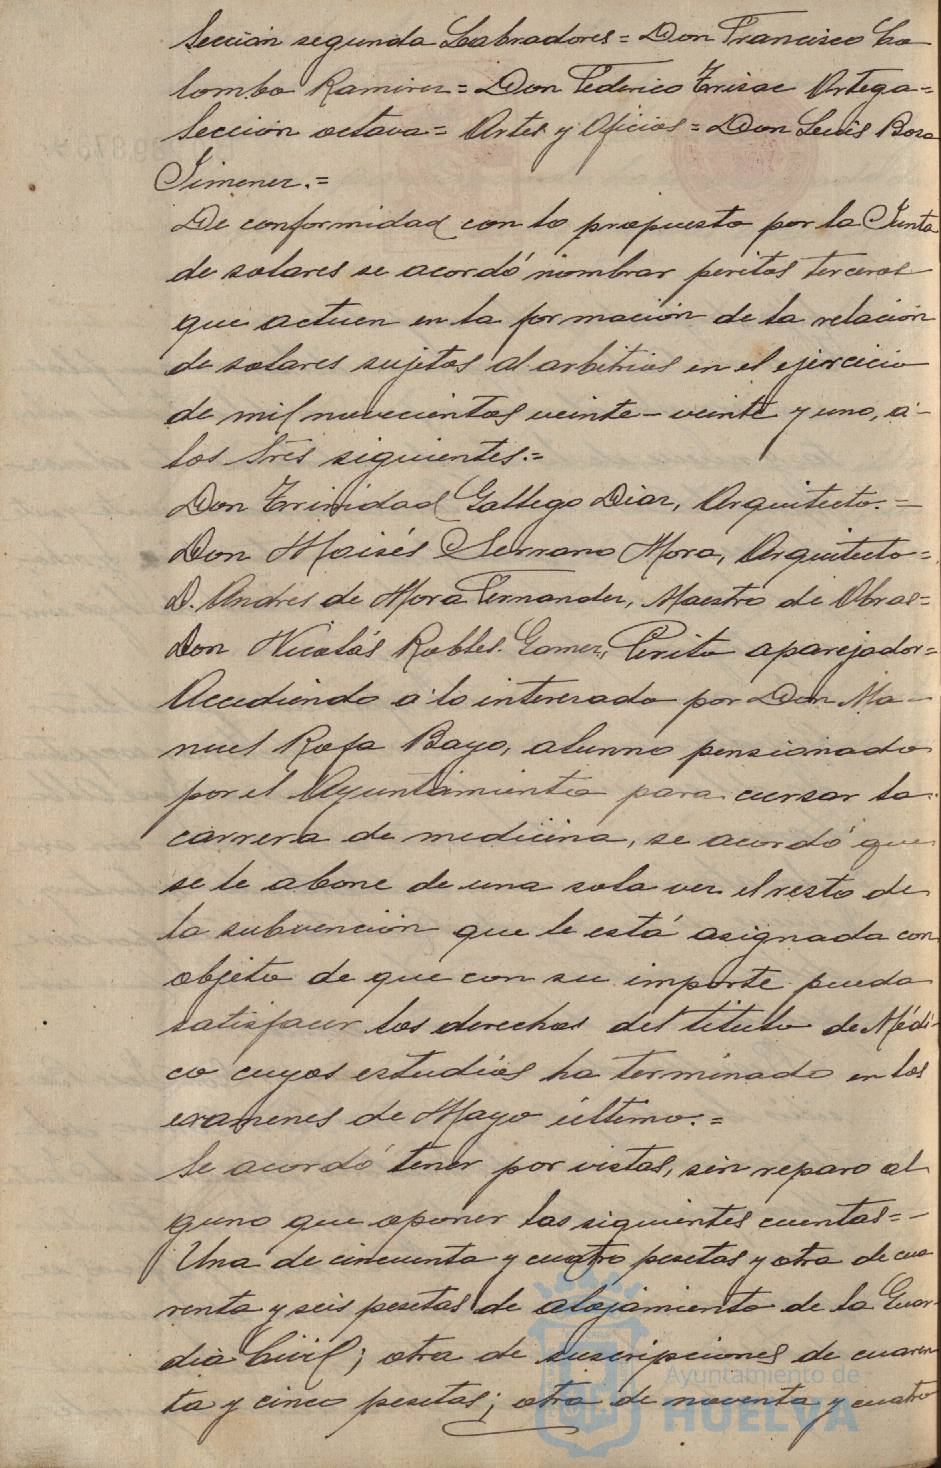 Sección segunda Labradores = Don Francisco Co
lombo Ramirez = Don Federico Trisac Ortega =
Sección octava = Artes y Oficios = Don Luis Boza
Jimenez. =
De conformidad con lo propuesto por la Junta
de solares se acordó nombrar peritos terceros
que actuen en la formación de la relación
de solares sujetos al arbitrios en el ejercicio
de mil novecientos veinte - veinte y uno, á
los Sres siguientes. =
Don Trinidad Gallego Diaz, Arquitecto. =
Don Moisés Serrano Mora, Arquitecto =
D. Andres de Mora Fernandez, Maestro de Obras =
Don Nicolás Robles Gomez, Perito aparejador =
Accediendo á lo interesado por Don Ma-
nuel Rofa Bayo, alumno pensionado
por el Ayuntamiento para cursar la
carrera de medicina, se acordó que
se le abone de una sola vez el resto de
la subvención que le está asignada con
objeto de que con su importe pueda
satisfacer los derechos del titulo de Médi-
co cuyos estudios ha terminado en los
examenes de Mayo último. =
Se acordó tener por vistas, sin reparo al
guno que oponer las siguientes cuentas = -
Una de cincuenta y cuatro pesetas y otra de cua
renta y seis pesetas de alojamiento de la Guar-
dia Civil; otra de suscripciones de cuaren
ta y cinco pesetas; otra de noventa y cuatro
Ayuntamiento de
HUELVA